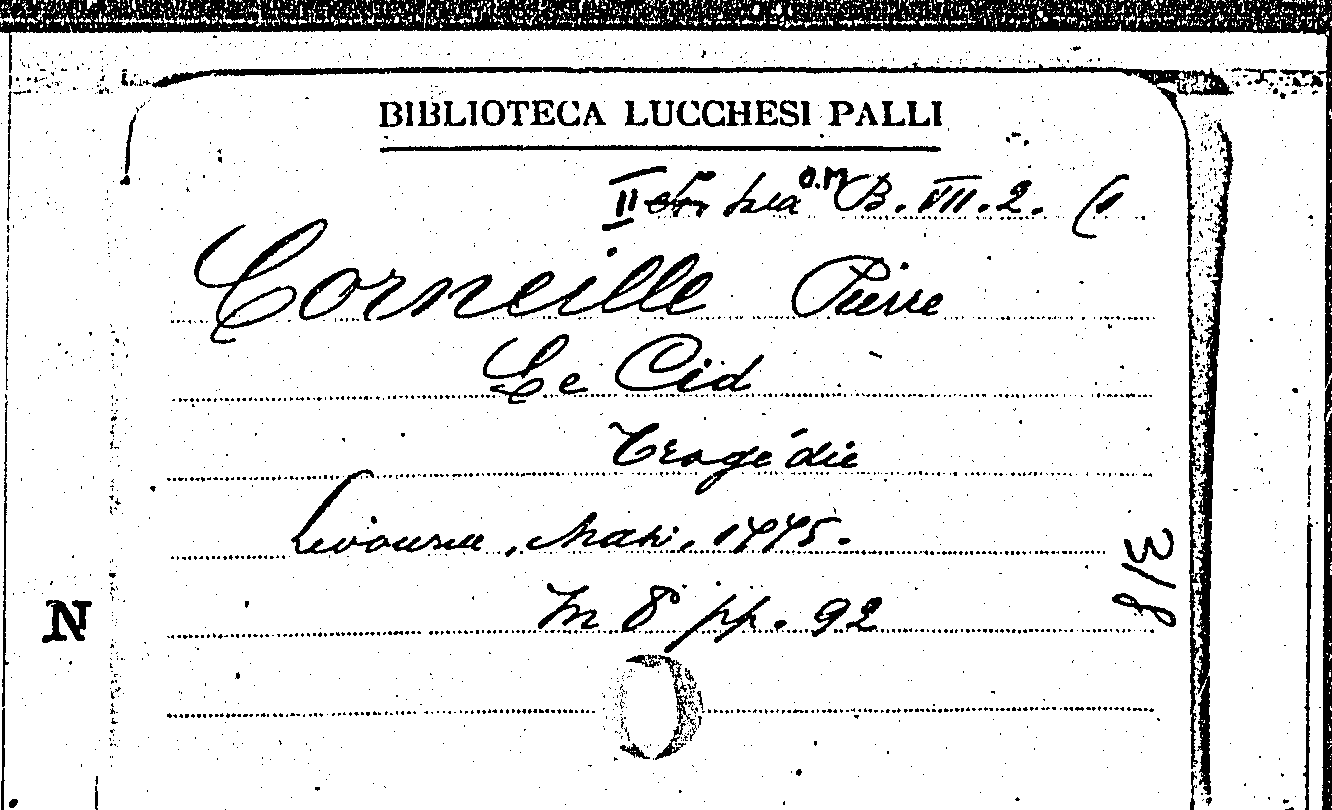 BIBLIOTECA LUCCHESI PALLI
II Sta O.M B. VII. 2. (
Corneille Pierre
Le Cid
Tragédie
Livourne, Masi, 1775.
In 8° pp. 92
318
N